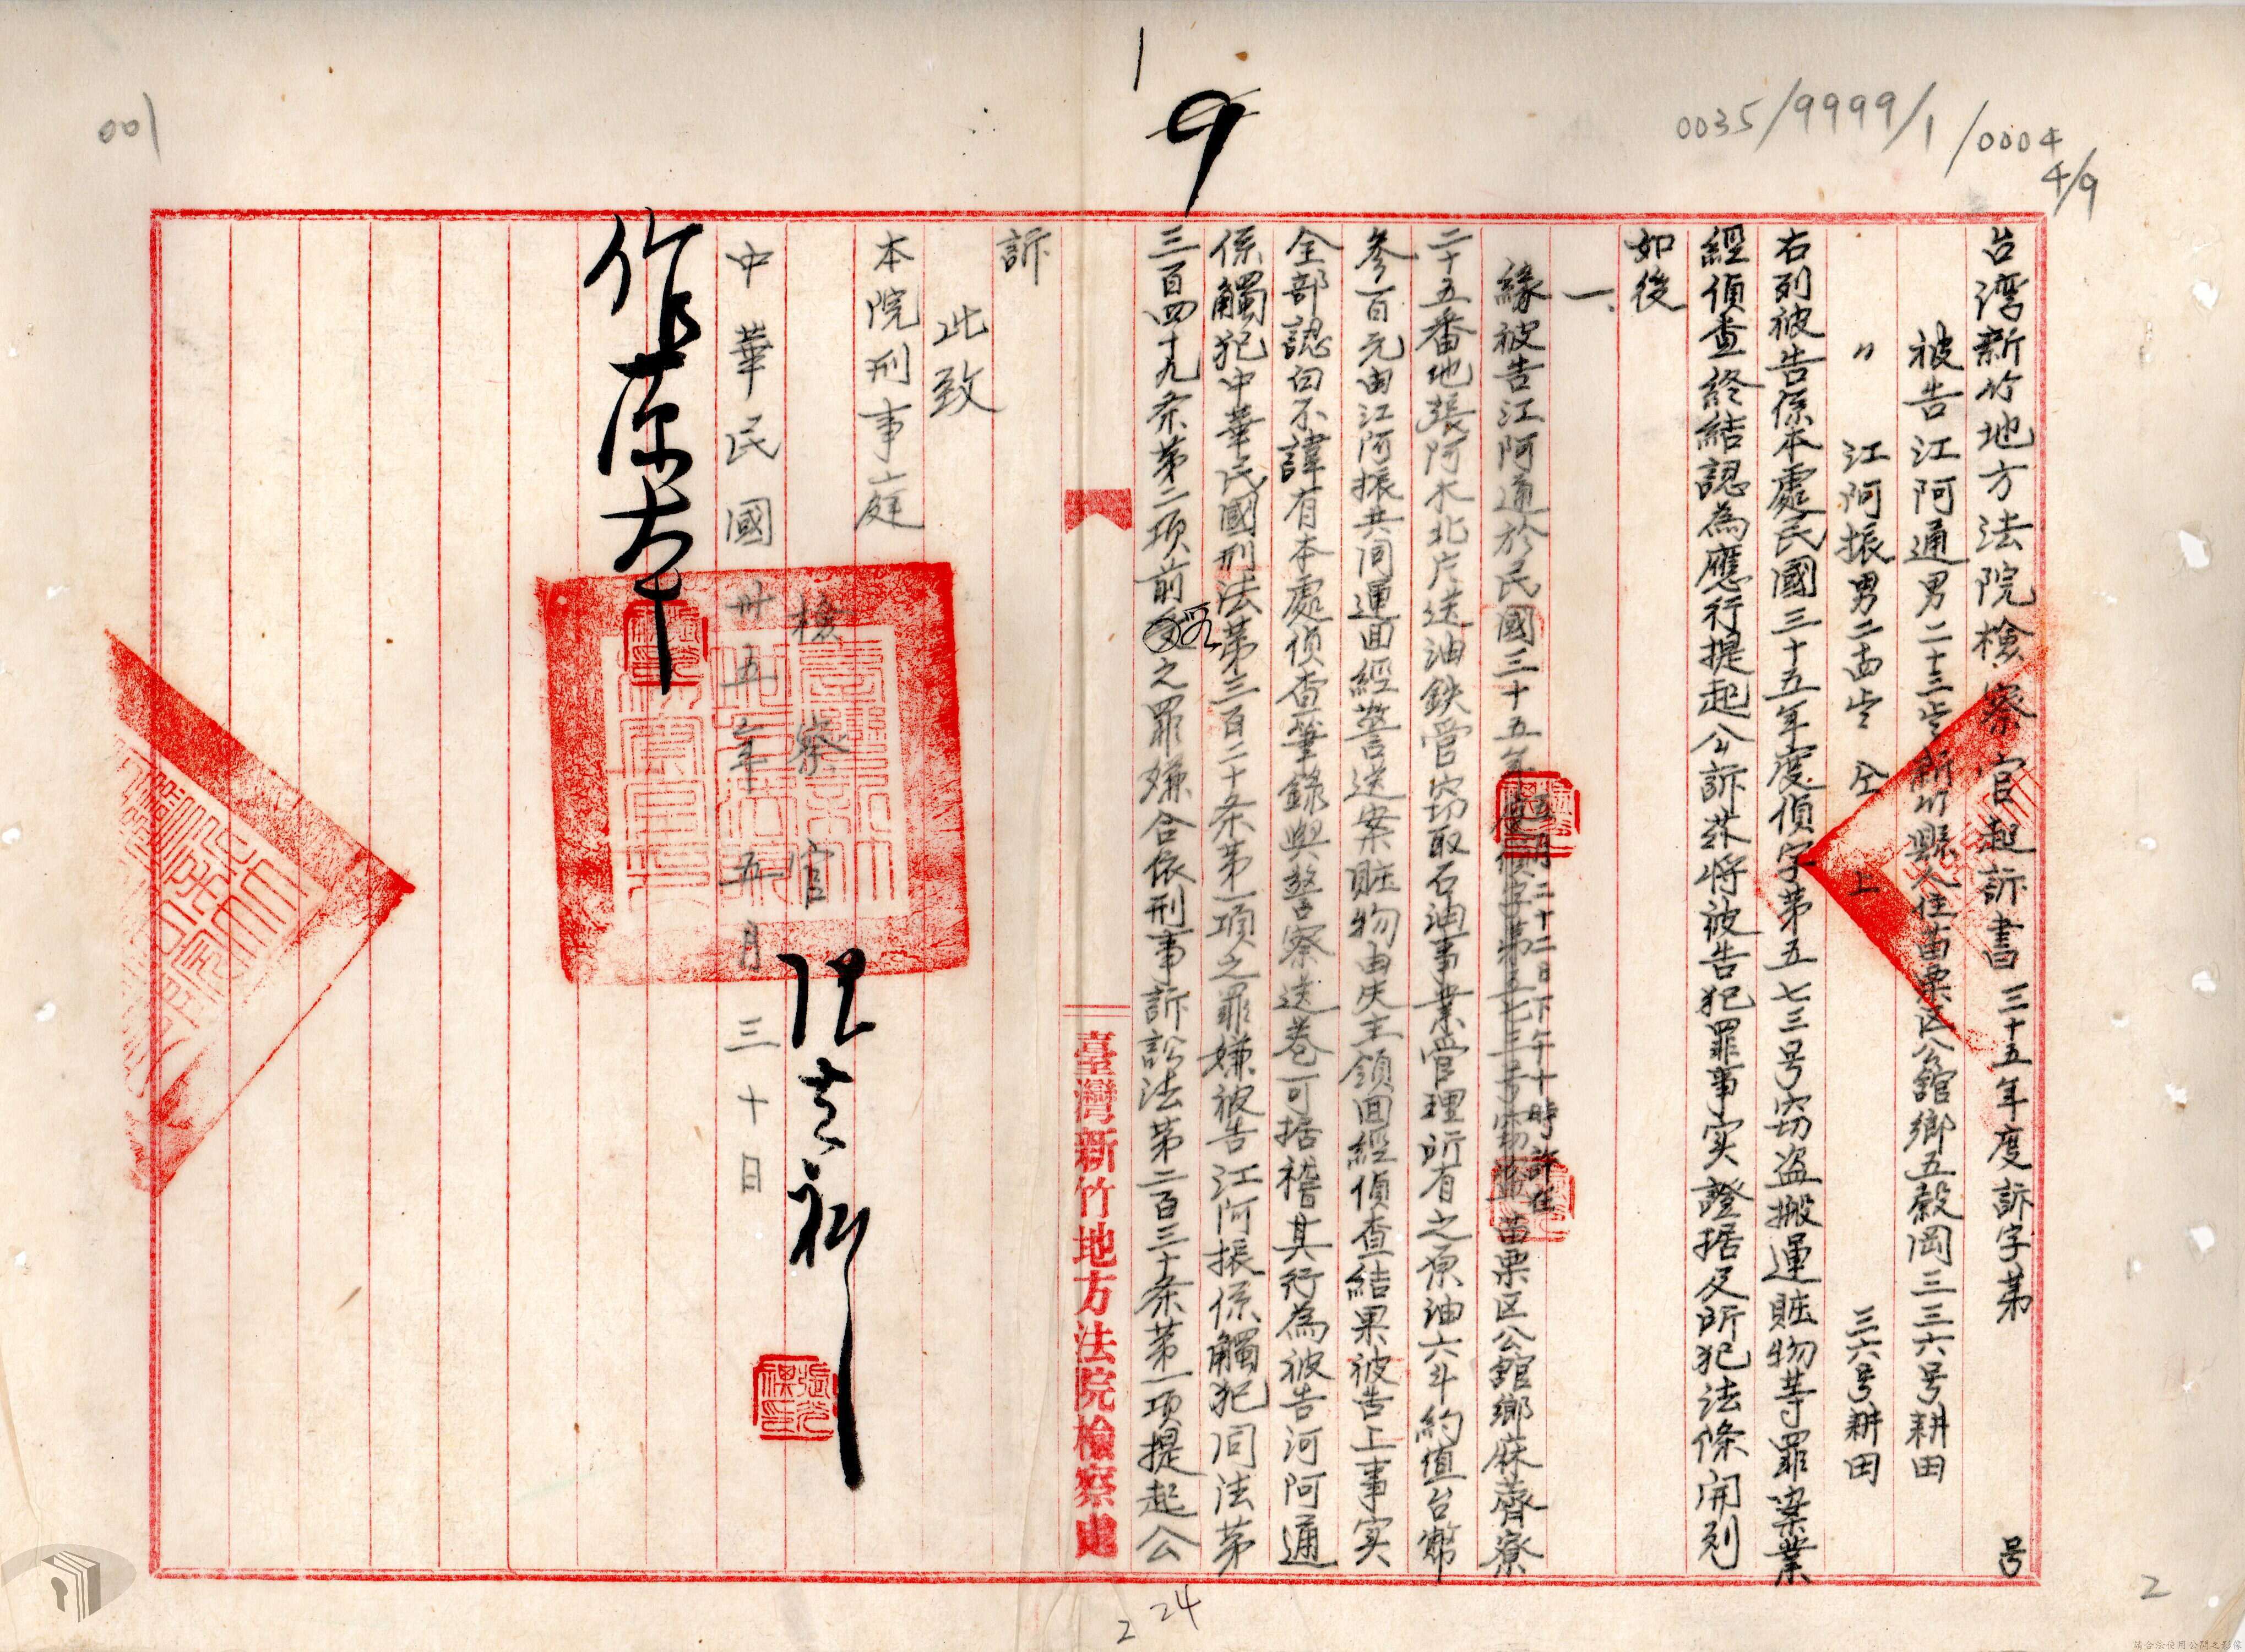 001
1
9
0035/9999/1/0004
4/9
台湾新竹地方法院檢察官起訴書三十五年度訴字第 号
被告江阿通男二十三岁新竹縣人住苗栗区公館鄉五穀岡三三六号耕田
〃 江阿振男二四岁仝上 三六号耕田
右列被告係本處民國三十五年度偵字第五七三号窃盗搬運賍物等罪案業
經偵查終結認為應行提起公訴茲將被告犯罪事实證据及所犯法條開列
如後
一、
緣被告江阿通於民國三十五年五月二十二日下午十時許在苗栗区公館鄉麻薺寮
二十五番地張阿木北片送油鉄管窃取石油事業管理所有之原油六斗約值台幣
參百元由江阿振共同運回經警送案賍物由失主領回經偵查結果被告上事实
全部認白不諱有本處偵查筆錄與警察送卷可据稽其行為被告河阿通
係觸犯中華民國刑法第三百二十条第一項之罪嫌被告江阿振係觸犯同法第
三百四十九条第二項前段之罪嫌合依刑事訴訟法第二百三十条第一項提起公
臺灣新竹地方法院檢察處
訴
此致
本院刑事庭
檢察官
中華民國卅五年五月三十日
作原本
2
24
2
請合法使用公開之影像